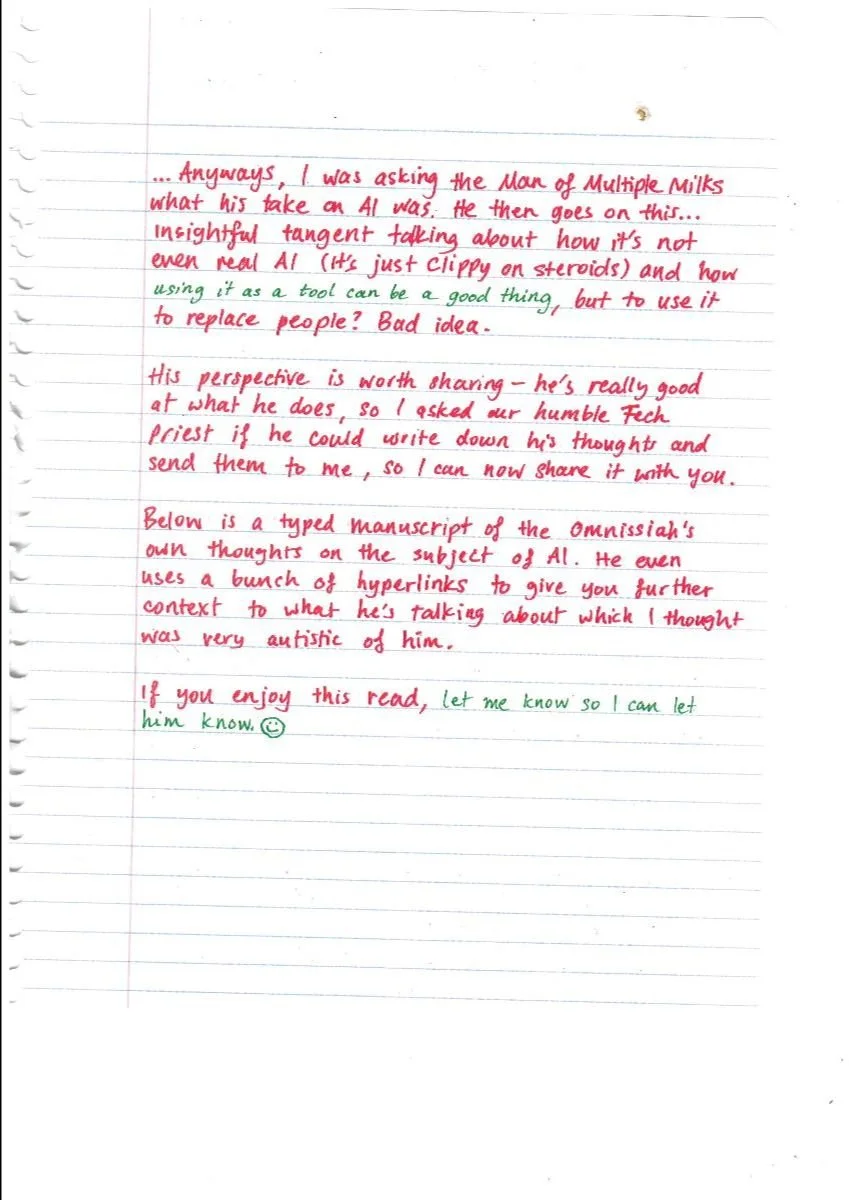 ... Anyways, I was asking the Man of Multiple Milks
what his take on AI was. He then goes on this...
insightful tangent talking about how it's not
even real AI (it's just Clippy on steroids) and how
using it as a tool can be a good thing, but to use it
to replace people? Bad idea.
His perspective is worth sharing – he's really good
at what he does, so I asked our humble Tech
Priest if he could write down his thoughts and
send them to me, so I can now share it with you.
Below is a typed manuscript of the Omnissiah's
own thoughts on the subject of AI. He even
uses a bunch of hyperlinks to give you further
context to what he's talking about which I thought
was very autistic of him.
If you enjoy this read, let me know so I can let
him know. ☺